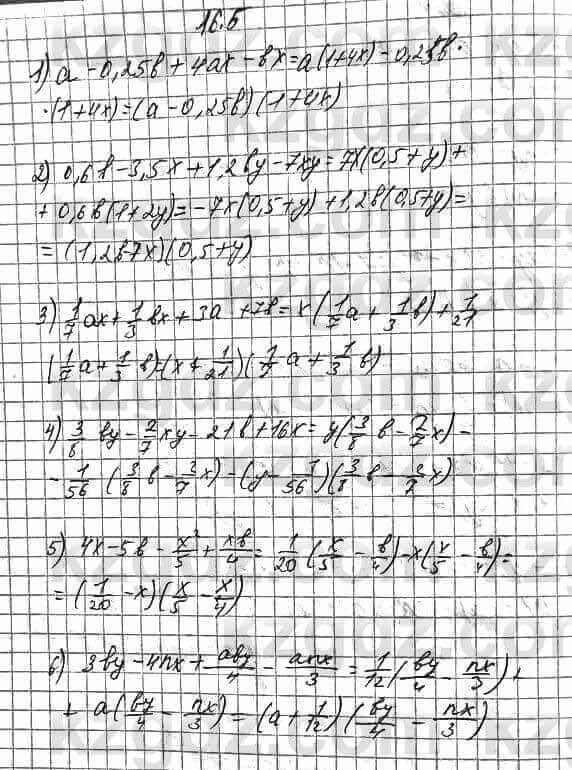 16.5
1) a - 0,25b + 4ax - bx = a(1+4x) - 0,25b ·
· (1+4x) = (a - 0,25b) (1+4x)
2) 0,6b - 3,5x + 1,2by - 7xy = 7x(0,5+y) +
+ 0,6b(1+2y) = -7x(0,5+y) + 1,2b(0,5+y) =
= (1,2b7x)(0,5+y)
3) 1/7 ax + 1/3 bx + 3a + 7b = x(1/7 a + 1/3 b) + 1/21
(1/7 a + 1/3 b) = (x + 1/21)(1/7 a + 1/3 b)
4) 3/8 by - 2/7 xy - 21b + 16x = y(3/8 b - 2/7 x) -
- 1/56 (3/8 b - 2/7 x) = (y - 1/56)(3/8 b - 2/7 x)
5) 4x - 5b - x²/5 + xb/4 = 1/20 (x/5 - b/4) - x(x/5 - b/4) =
= (1/20 - x)(x/5 - x/4)
6) 3by - 4nx + aby/4 - anx/3 = 1/12 (by/4 - nx/3) +
+ a(by/4 - nx/3) = (a + 1/12)(by/4 - nx/3)
kzgdz.com